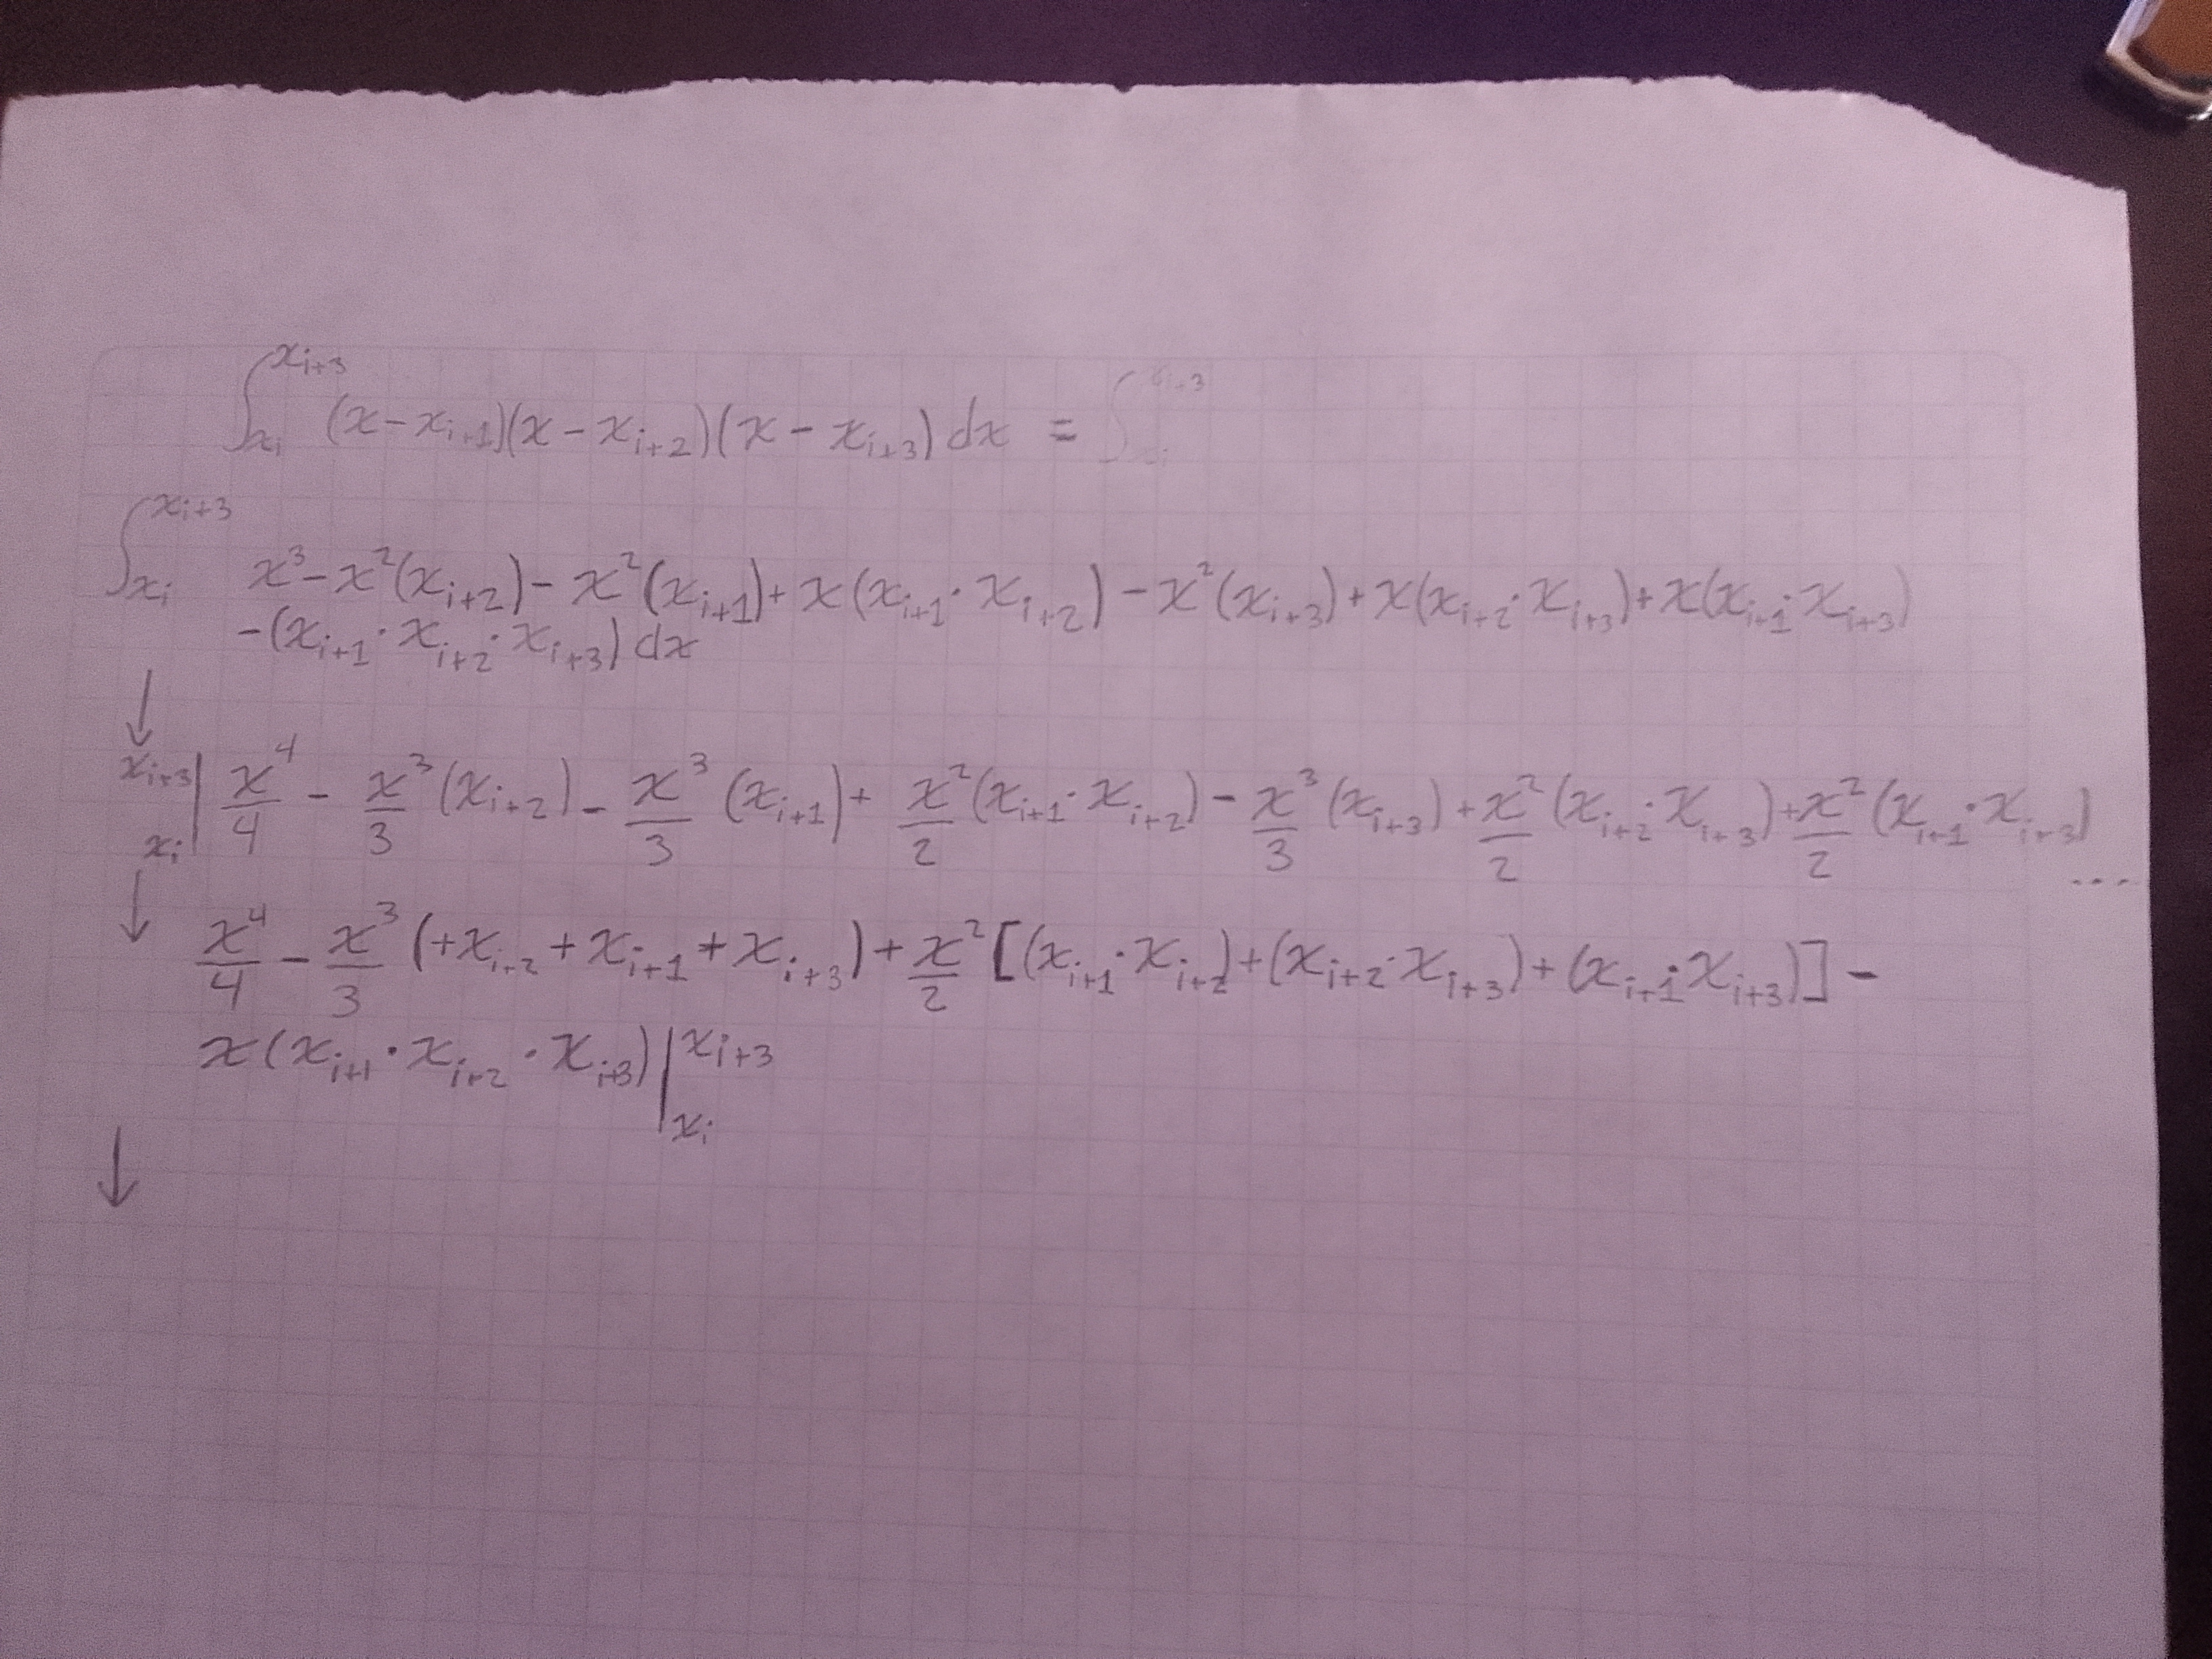 ∫_{x_i}^{x_{i+3}} (x-x_{i+1})(x-x_{i+2})(x-x_{i+3}) dx = ∫_{x_i}^{x_{i+3}}
∫_{x_i}^{x_{i+3}} x³-x²(x_{i+2})-x²(x_{i+1})+x(x_{i+1}·x_{i+2})-x²(x_{i+3})+x(x_{i+2}·x_{i+3})+x(x_{i+1}·x_{i+3})
-(x_{i+1}·x_{i+2}·x_{i+3}) dx
↓
x_{i+3} x_i | x⁴/4 - x³/3 (x_{i+2}) - x³/3 (x_{i+1}) + x²/2 (x_{i+1}·x_{i+2}) - x³/3 (x_{i+3}) + x²/2 (x_{i+2}·x_{i+3}) + x²/2 (x_{i+1}·x_{i+3}) ...
↓ x⁴/4 - x³/3 (+x_{i+2}+x_{i+1}+x_{i+3}) + x²/2 [(x_{i+1}·x_{i+2})+(x_{i+2}·x_{i+3})+(x_{i+1}·x_{i+3})] -
x(x_{i+1}·x_{i+2}·x_{i+3}) |_{x_i}^{x_{i+3}}
↓